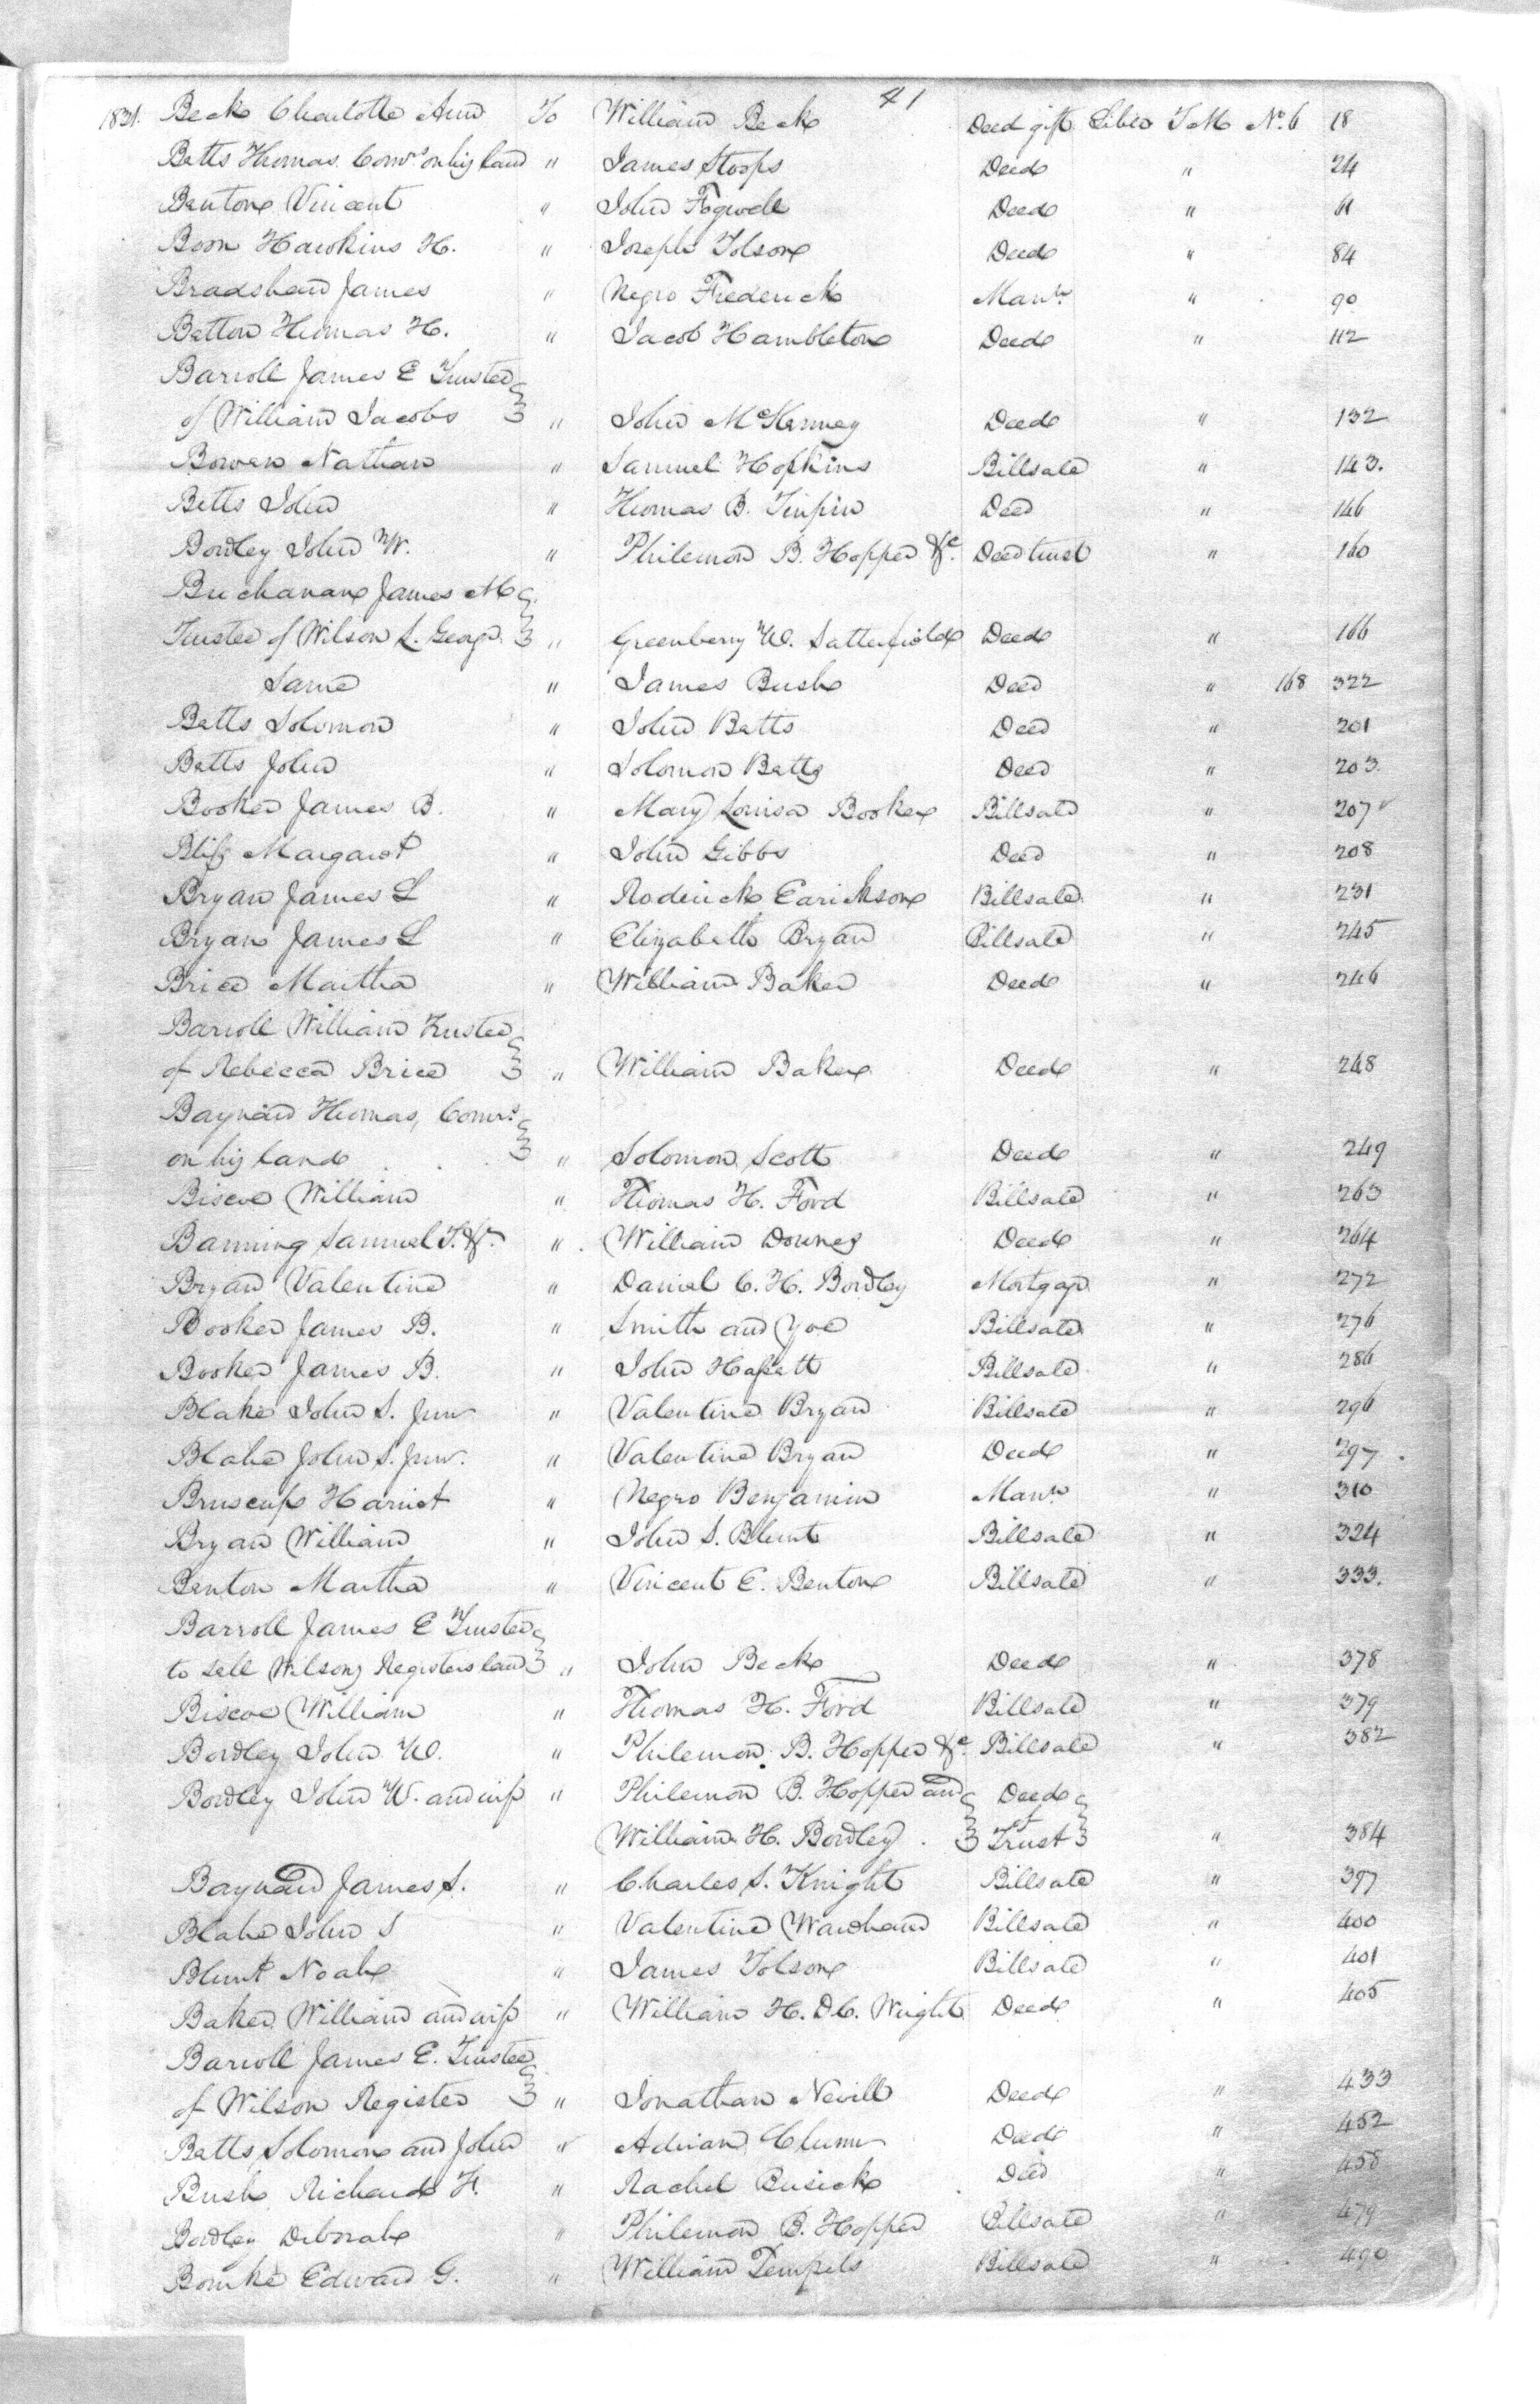 41
1831. Beck Charlotte Ann To William Beck Deed gift Liber T M No. 6 18
Betts Thomas, Comrs. on his land " James Stoops Deed " 24
Benton Vincent " John Fogwell Deed " 61
Boon Hawkins H. " Joseph Tolson Deed " 84
Bradshaw James " Negro Frederick Mann. " 90
Betton Thomas H. " Jacob Hambleton Deed " 112
Barroll James E Trustee
of William Jacobs " John McKenney Deed " 132
Bowen Nathan " Samuel Hopkins Billsale " 143.
Betts John " Thomas B. Turpin Deed " 146
Bordley John W. " Philemon B. Hopper &c. Deed trust " 160
Buchanan James M
Trustee of Wilson L. George " Greenberry W. Satterfield Deed " 166
Same " James Bush Deed " 168 322
Betts Solomon " John Betts Deed " 201
Betts John " Solomon Betts Deed " 203.
Booker James B. " Mary Louisa Booker Billsale " 207
Bliss Margaret " John Gibbs Deed " 208
Bryan James L " Roderick Earickson Billsale " 231
Bryan James L " Elizabeth Bryan Billsale " 245
Brice Martha " William Baker Deed " 246
Barroll William Trustee
of Rebecca Brice " William Baker Deed " 248
Baynard Thomas, Comrs.
on his land " Solomon Scott Deed " 249
Biscoe William " Thomas H. Ford Billsale " 263
Banning Samuel T. &c. " William Downes Deed " 264
Bryan Valentine " Daniel C. H. Bordley Mortgage " 272
Booker James B. " Smith and Yoe Billsale " 276
Booker James B. " John Hassett Billsale " 286
Blake John S. Junr " Valentine Bryan Billsale " 296
Blake John S. Junr. " Valentine Bryan Deed " 297
Bruscups Harriet " Negro Benjamin Mann " 310
Bryan William " John S. Blunt Billsale " 324
Benton Martha " Vincent E. Benton Billsale " 333.
Barroll James E Trustee
to sell Wilson Registers land " John Beck Deed " 378
Biscoe William " Thomas H. Ford Billsale " 379
Bordley John W. " Philemon B. Hopper &c. Billsale " 382
Bordley John W. and wife " Philemon B. Hopper and Deed
William H. Bordley of Trust " 384
Baynard James S. " Charles S. Knight Billsale " 397
Blake John S " Valentine Wardham Billsale " 400
Blunt Noah " James Tolson Billsale " 401
Baker William and wife " William H. DC. Wright Deed " 405
Barroll James E. Trustee
of Wilson Register " Jonathan Nevill Deed " 433
Betts Solomon and John " Adrian Deed " 452
Bush Richard F. " Rachel Busick Deed " 458
Bordley Deborah " Philemon B. Hopper Billsale " 479
Bourke Edward G. " William Tempels Billsale " 490